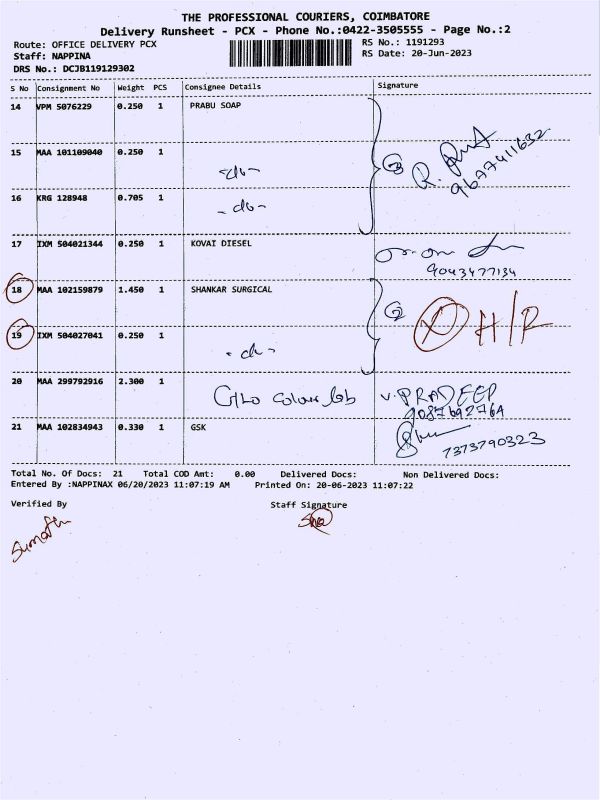 THE PROFESSIONAL COURIERS, COIMBATORE
Delivery Runsheet - PCX - Phone No.:0422-3505555 - Page No.:2
Route: OFFICE DELIVERY PCX
RS No.: 1191293
Staff: NAPPINA
RS Date: 20-Jun-2023
DRS No.: DCJB119129302
S No Consignment No Weight PCS Consignee Details Signature
14 VPM 5076229 0.250 1 PRABU SOAP
15 MAA 101109040 0.250 1
-do-
3 R.
9677411632
16 KRG 128948 0.705 1
-do-
17 IXM 504021344 0.250 1 KOVAI DIESEL
9043477134
18 MAA 102159879 1.450 1 SHANKAR SURGICAL
2 H/R
19 IXM 504027041 0.250 1
-do-
20 MAA 299792916 2.300 1 Colour lab V.PRADEEP
21 MAA 102834943 0.330 1 GSK
7373790323
Total No. Of Docs: 21 Total COD Amt: 0.00 Delivered Docs: Non Delivered Docs:
Entered By :NAPPINAX 06/20/2023 11:07:19 AM Printed On: 20-06-2023 11:07:22
Verified By Staff Signature